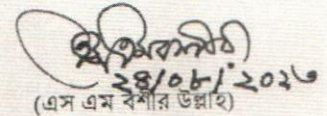 ২৪/০৮/২০২৩
(এস এম বশীর উল্লাহ)